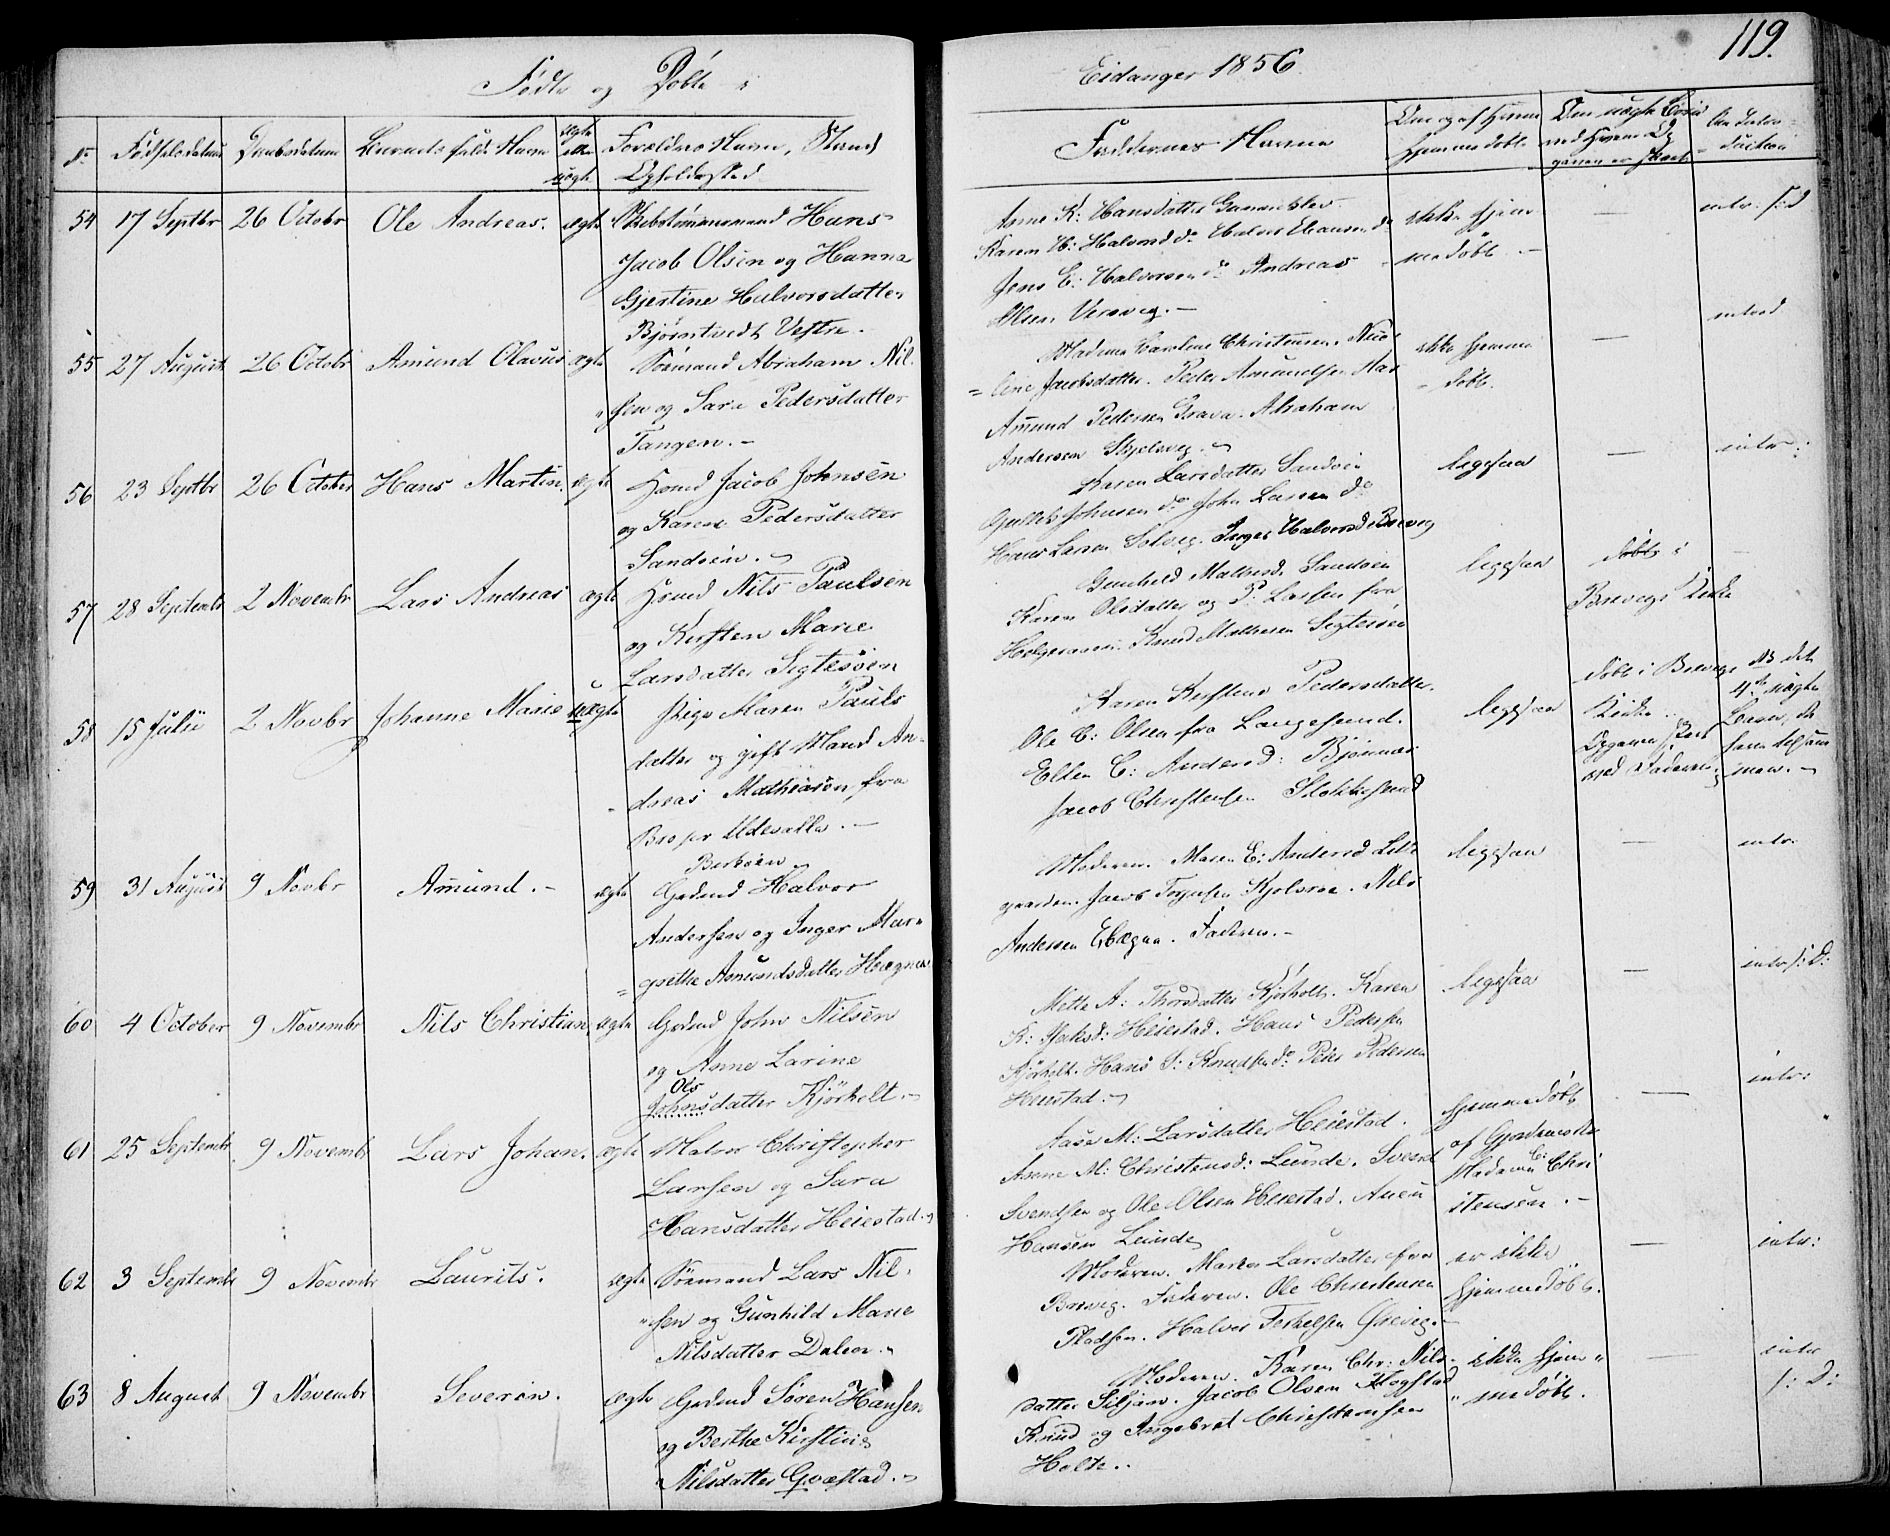 Fødte og Døbte i
Eidanger 1856.
119.
No
Fødselsdatum
Daabsdatum
Barnets fulde Navn
ægte
eller
uægte
Forældres Navn, Stand
Opholdssted
Faddernes Navne
Om og af hvem
hjemmedøbt
Om uægte
med hvem
An Intro=
duction
54
17 Septbr
26 Octobr
Ole Andreas.
ægte
Hans
Jacob Olsen og Hanna
Gjertine Halvorsdatter
Bjørntvedt Vestre.
Anne K: Hansdatter
Karen H: Halvorsd do Halvor
Jens E: Halvorsen do Andreas
Olsen Versvig.
ikke hjem
medøbt.
—
intr. S: D
55
27 August
26 Octobr
Amund Olavus
ægte
Sømand Abraham Nil=
sen og Sara Pedersdatter
Tangen.
Madame Caroline Christensen.
line Jacobsdatter. Peder Amundsen
Amund Pedersen Grava. Abraham
Andersen Skjelsvig.
ikke hjemme
døbt.
—
introd
56
23 Septbr
26 October
Hans Martin.
ægte
Hsmd Jacob Johnsen
og Karen Pedersdatter
Sandøen.
Karen Larsdatter Sandøen
Johnsen do John Larsen do
Hans Larsen Solvig. Inger Halvorsd Brevig
ligesaa
—
intr:
57
28 Septembr
2 Novembr
Lars Andreas
ægte
Hsmd Nils Paulsen
og Kirsten Marie
Larsdatter Sigtesøen
Gunhild Sandøen
Karen Olsdatter og P: Larsen fra
Knud Mathesen Sigtesøen
ligesaa
døbt i
Brevigs Kirke
—
58
15 Julii
2 Novbr
Johanne Marie
uægte
Pige Maren Pauls
datter og gift Mand An=
dreas Mathiasen fra
Bro pr Udevalla.
Karen Kirstine Pedersdatter.
Ole C: Olsen fra Langesund.
Ellen C: Andersd: Bjønnes
Jacob Christensen Stokkesund
ligesaa
døbt i Brevigs
Kirke
Opgaven skeet
ved Faderen
det
4de uægte
59
31 August
9 Novbr
Amund.
ægte
Gdmd Halvor
Andersen og Inger Mar=
grethe Amundsdatter
Moderen. Maren E: Andersd
gaarden. Jacob Kjølnes. Nils
Andersen. Faderen.
ligesaa
—
intr.
60
4 October
9 Novembr
Nils Christian
ægte
Gdmd John Nilsen
og Anne Larine
Ols
Johnsdatter Kjørholt.
Mette A: Thorsdatter Kjørholt. Karen
K: Heiestad. Hans Pedersen
Kjørholt. Hans S: Knudsen do Peder Pedersen
Heiestad.
ligesaa
—
intr S: D:
61
25 Septembr
9 Novembr
Lars Johan.
ægte
Halvor Christopher
Larsen og Sara
Hansdatter Heiestad.
Aase M: Larsdatter Heiestad.
Anne M: Christensd: Lunde. Svend
Svendsen og Ole Olsen Heiestad.
Hansen Lunde
hjemmedøbt
af Gjordemoder
Madame C: Chri
stensen.
—
intr:
62
3 Septembr
9 Novembr
Laurits.
ægte
Sømand Lars Nil=
sen og Gunhild Marie
Nilsdatter Dalen.
Moderen. Maren Larsdatter fra
Brevig. Faderen. Ole Christensen
Pladsen. Halvor Terkelsen
er ikke
hjemmedøbt.
—
intr:
63
8 August
9 Novembr
Severin.
ægte
Gdmd Søren Hansen
og Berthe Kirstine
Nilsdatter
Moderen. Karen Chr: Nils=
datter Siljan. Jacob Olsen
Knud og Ingebret Christensen
Holte.
ikke hjem=
medøbt.
—
intr
S: D: